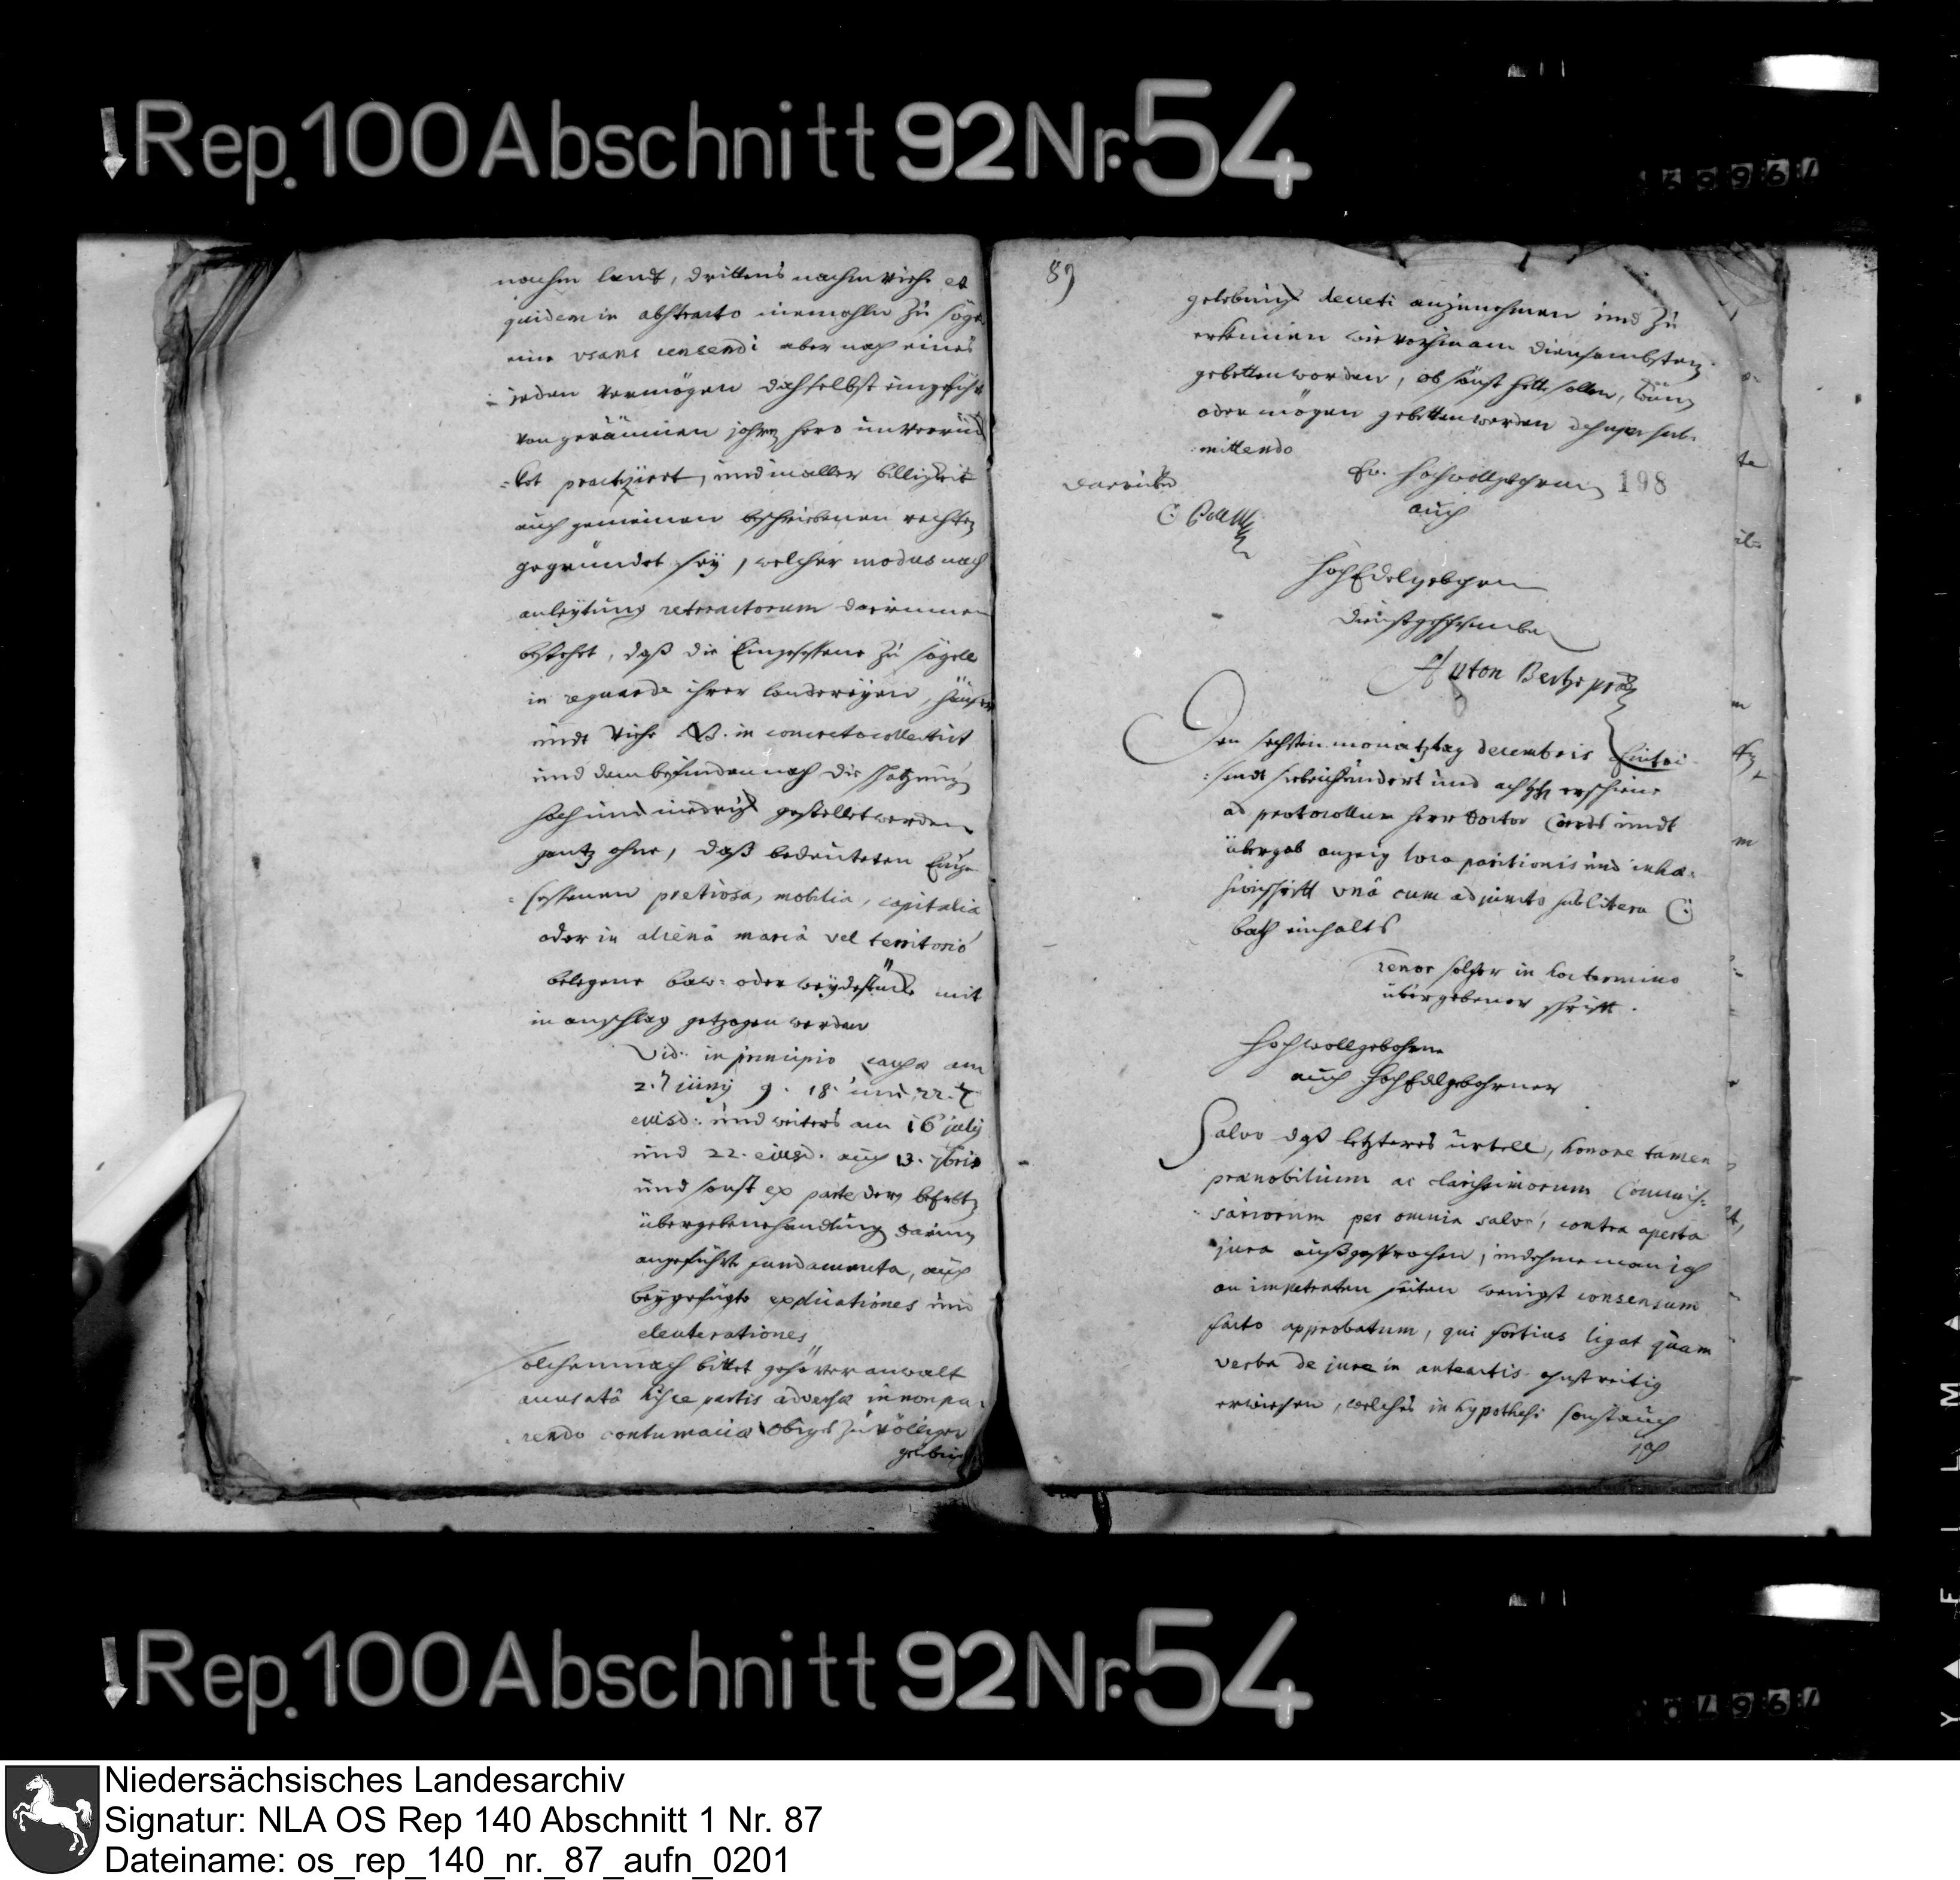 Rep. 100 Abschnitt 92 Nr. 54
nachm landt, drittens nachm viehe et
quidem in abstracto niemahln zu Sögel
eine usans censendi aber nach eines
jeden vermögen daselbst eingeführt
von geraumen jahrn hero unverrück
=ket practiziert, und in aller billigkeit
auch gemeinen beschriebenen rechten
gegründet sey, welcher modus nach
anleytung retroactorum darinnen
bestehet, daß die Eingesessene zu Sögell
in reguarde ihrer landereyen, häuser
undt viehe NB. in concreto collectirt
und dem befinden nach die schatzung
hoch und niedrig gestellet werden
gantz ohne, daß bedeuteten Einge
=sessenen pretiosa, mobilia, capitalia
oder in aliena marca vel territorio
belegene baw= oder weydestücke mit
in anschlag getzogen werden
Vid: in principio causa am
2. Junij 9. 18. und 22.
eiusd: und weiters am 16 july
und 22. eiusd. auch 13. 7bris
und sonst ex parte der beerbten
übergebene handlung darin
angeführte fundamenta, auch
beygefügte explicationes und
eleuterationes
Solchemnach bittet gehöver anwalt
accusatâ hisce partis adversæ in non pa=
rendo contumacia obiges zu völliger
gelebung
89
gelebung decreti anzunehmen und zu
erkennen wie vorhin am diensambsten
gebetten worden, ob sonst hette sollen, können
oder mögen gebetten werden desuper sub=
mittendo
Ew. Hochwollgebohrnen
198
auch
HochEdelgebohren
dienstgehorsamber
Anton Bertze
Den sechsten monatztag decembris Eintau
=sendt siebenhundert und achtzehn erschiene
ad protocollum Herr Doctor undt
übergab anzeig loco paritionis und inhæ=
siv schrifft una cum adjuncto sub litera C:
bath einhalts
Tenor solcher in hoc termino
übergebener schrifft.
Hochwollgebohrne
auch HochEdelgebohrner
Salvo daß letzteres urtell, honore tamen
prænobilium ac clarissimorum Commis=
sariorum per omnia salvo, contra aperta
jura außgesprochen, indehme man ich
an impetraten seiten wenigst consensum
facto approbatum, qui fortius ligat quam
verba de jure in anteactis ohnstreitig
erwiesen, welches in hypothesi sonst auch
ich
Rep. 100 Abschnitt 92 Nr. 54
Niedersächsisches Landesarchiv
Signatur: NLA OS Rep 140 Abschnitt 1 Nr. 87
Dateiname: os_rep_140_nr._87_aufn_0201